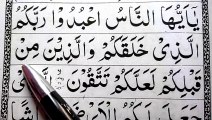 يٰٓاَيُّهَا النَّاسُ اعْبُدُوْا رَبَّكُمُ
الَّذِىْ خَلَقَكُمْ وَالَّذِيْنَ مِنْ
قَبْلِكُمْ لَعَلَّكُمْ تَتَّقُوْنَ
لَكُمُ الْاَرْضَ